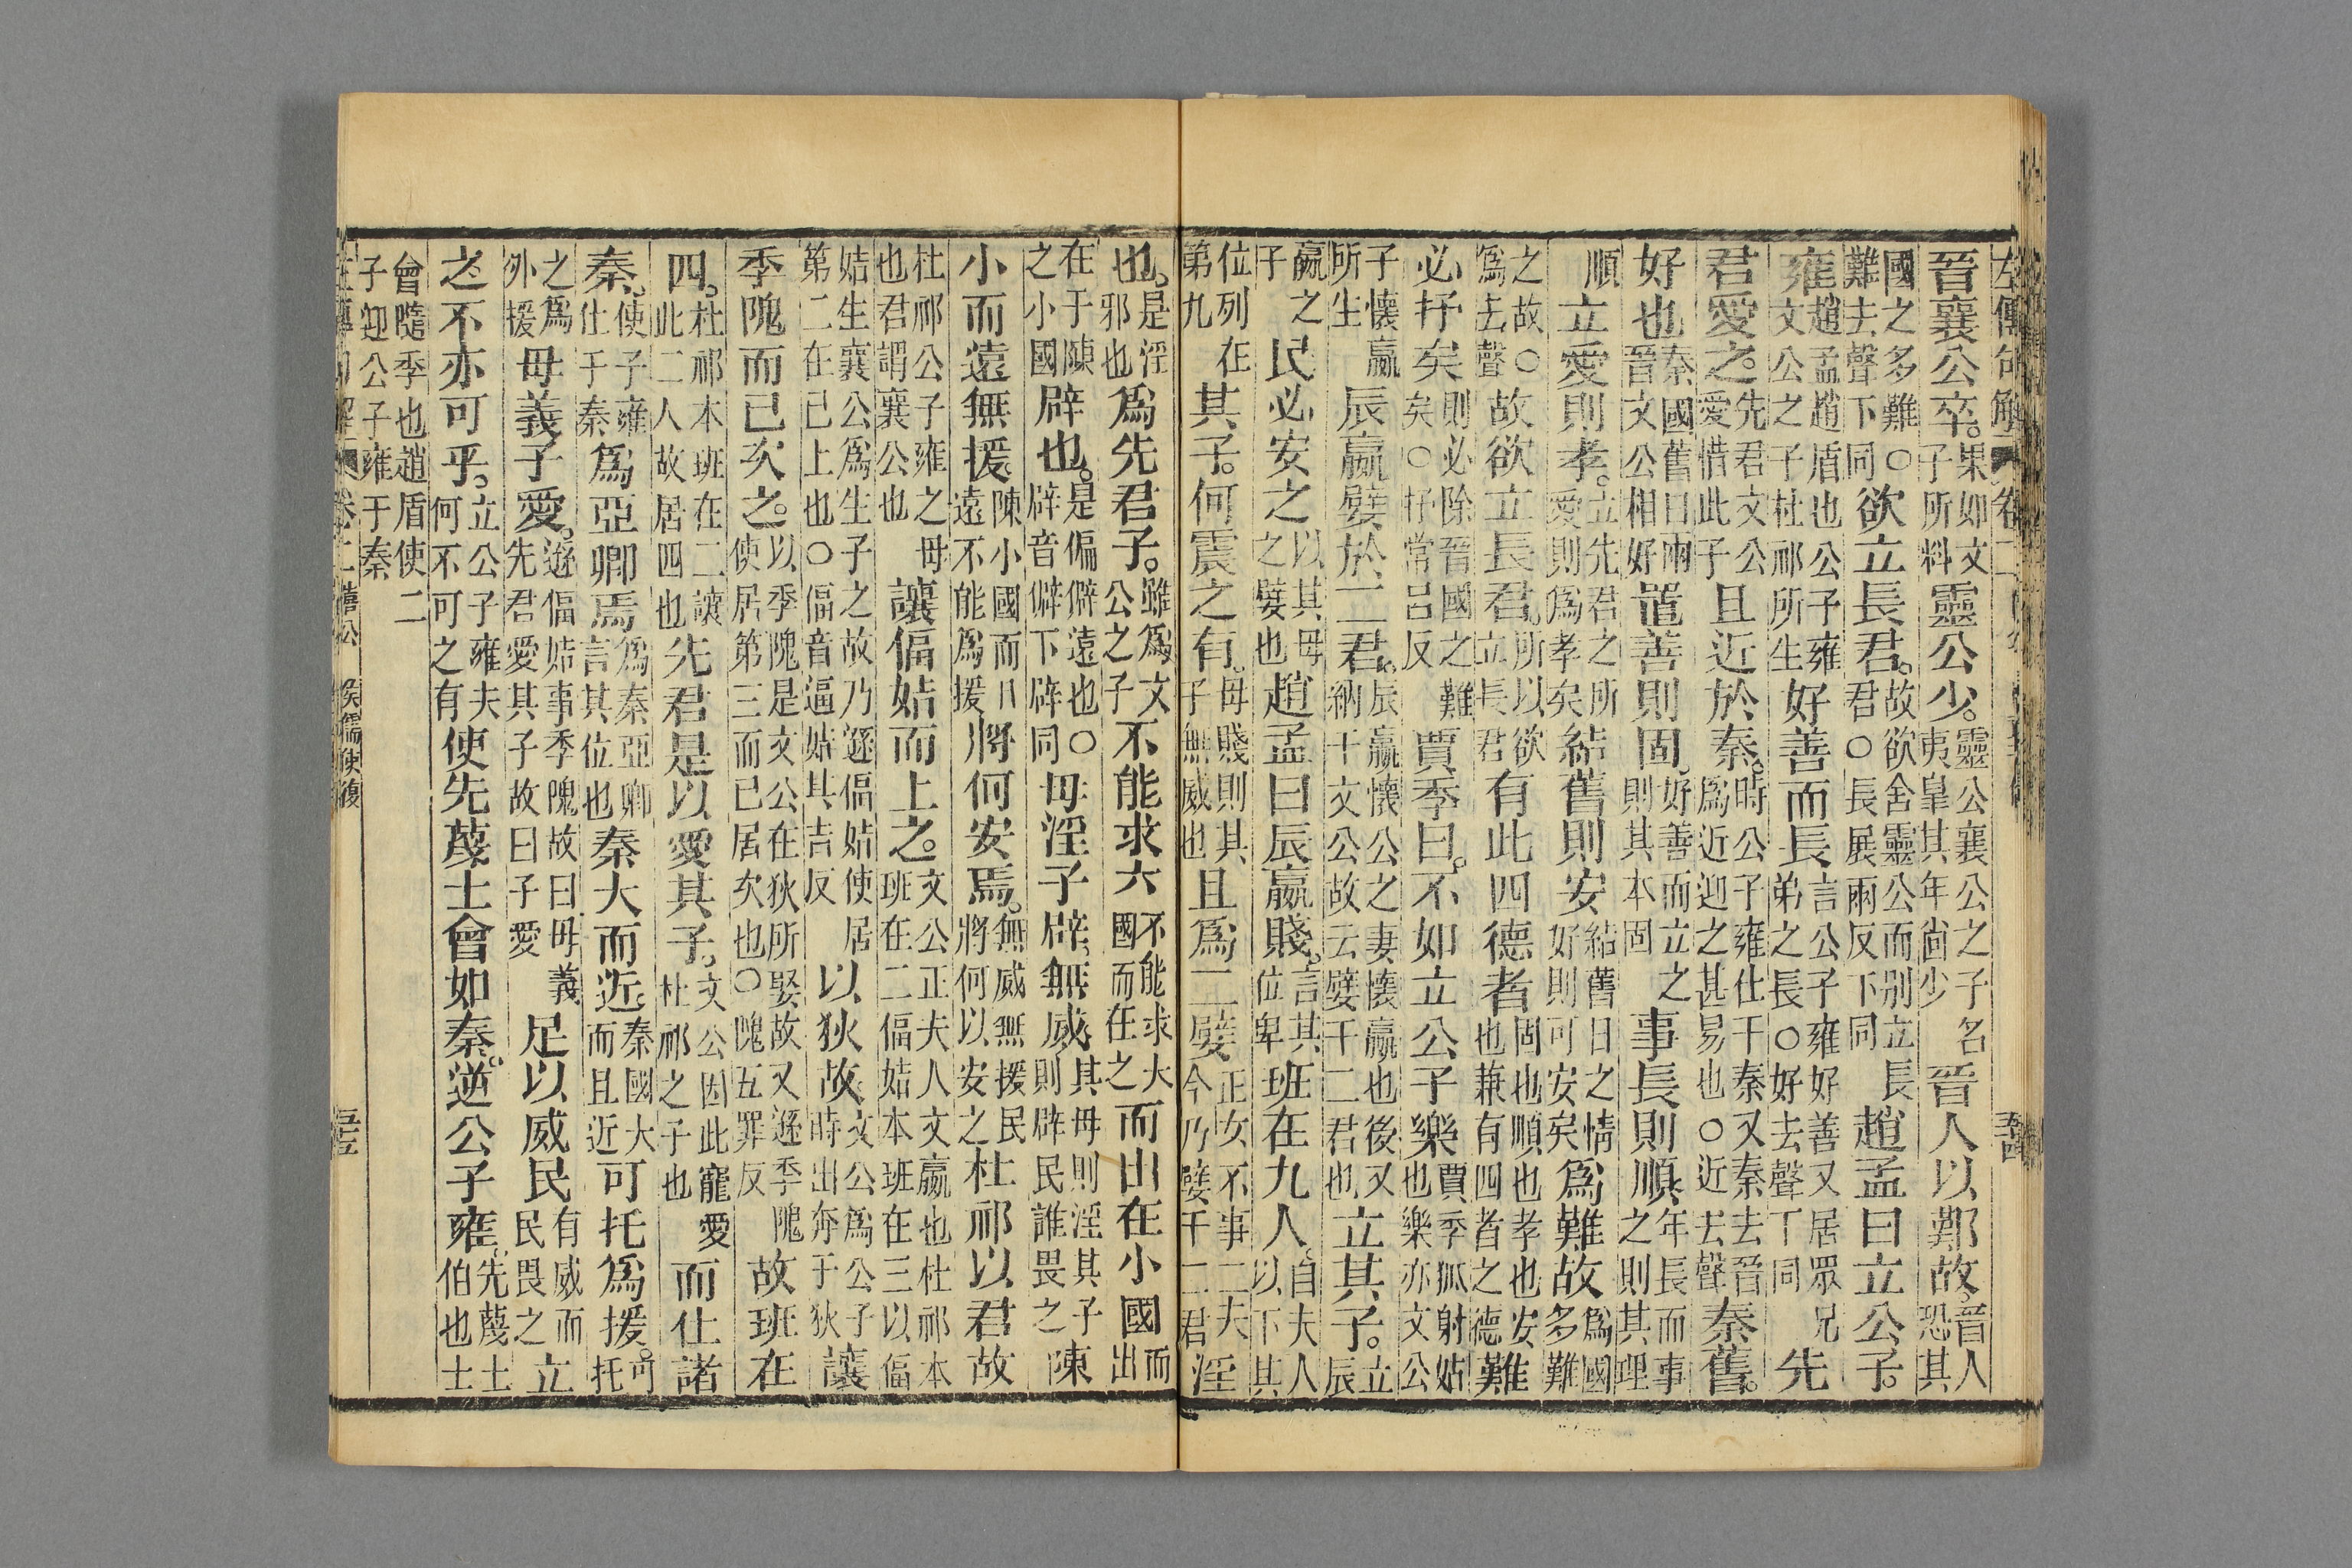 左傳句解 卷二
晉襄公卒。果如文子所料靈公少。靈公襄公之子名夷皐其年尙少晉人以難故。晉人恐其
國之多難○難去聲下同欲立長君。故欲舍靈公而別立長君○長展兩反下同趙孟曰立公子。
雍趙孟趙盾也公子雍文公之子杜祁所生好善而長言公子雍好善又居眾兄弟之長○好去聲下同先
君愛之。先君文公愛惜此子且近於秦。時公子雍仕于秦又秦去晉爲近迎之甚易也○近去聲秦舊
好也秦國舊日兩晉文公相好置善則固。好善而立之則其本固事長則順年長而事之則其理
順立愛則孝。立先君之所愛則爲孝矣結舊則安結舊日之情好則可安矣爲難故爲國多難
之故○爲去聲故欲立長君所以欲立長君有此四德者固也順也孝也安也兼有四者之德難
必抒矣則必除晉國之難矣○抒常呂反賈季曰。不如立公子樂賈季狐射姑也樂亦文公
子懷嬴所生辰嬴嬖於二君。辰嬴懷公之妻懷嬴也後又納于文公故云嬖于二君也立其子。立辰
嬴之子民必安之以其母之嬖也趙孟曰辰嬴賤。言其位卑班在九人。自夫人以下其
位列在第九其子。何震之有。母賤則其子無威也且爲二嬖正女不事二夫今乃嬖于二君淫
也。是淫邪也爲先君子。雖爲文公之子不能求大不能求大國而在之而出在小國而出
在于陳之小國辟也。是偏僻遠也○辟音僻下辟同母淫子辟。無威其母則淫其子則辟民誰畏之陳
小而遠無援。陳小國而遠不能爲援將何安焉。無威無援民將何以安之杜祁以君故
杜祁公子雍之母也君謂襄公也讓偪姞而上之。文公正夫人文嬴也杜祁本班在二偪姞本班在三以偪
姞生襄公爲生子之故乃遜偪姞使居第二在已上也○偪音逼姞其吉反以狄故文公爲公子時出奔于狄讓
季隗而已次之。以季隗是文公在狄所娶故又遜季隗使居第三而已居次也○隗五罪反故班在
四。杜祁本班在二讓此二人故居四也先君是以愛其子。文公因此寵愛杜祁之子也而仕諸
秦。使子雍仕于秦爲亞卿焉爲秦亞卿言其位也秦大而近秦國大而且近可托爲援。可托
之爲外援母義子愛。遜偪姞事季隗故曰母義先君愛其子故曰子愛足以威民有威而民畏之立
之不亦可乎。立公子雍夫何不可之有使先蔑士會如秦。逆公子雍。先蔑士伯也士
會隨季也趙盾使二子迎公子雍于秦
卷二 僖公 侯儒使復 五三